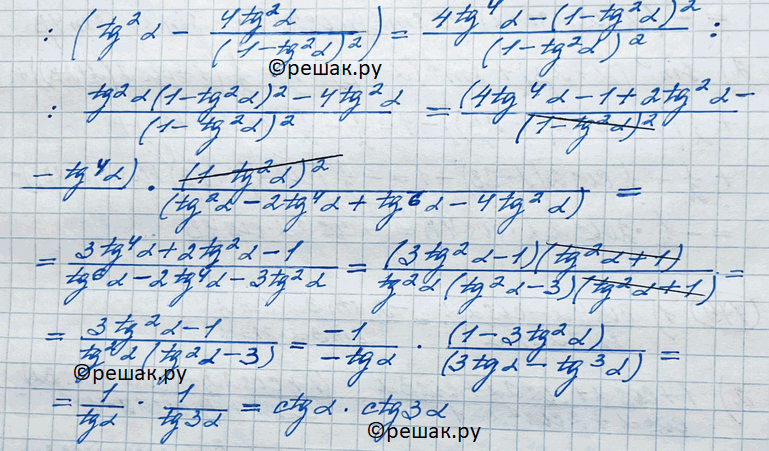 : (tg²α − 4tg²α/(1−tg²α)²) = (4tg⁴α − (1−tg²α)²)/(1−tg²α)² :
©решак.ру
: (tg²α(1−tg²α)² − 4tg²α)/(1−tg²α)² = (4tg⁴α − 1 + 2tg²α −/(1−tg²α)²
− tg⁴α) · (1−tg²α)²/(tg²α − 2tg⁴α + tg⁶α − 4tg²α) =
= (3tg⁴α + 2tg²α − 1)/(tg⁶α − 2tg⁴α − 3tg²α) = (3tg²α − 1)(tg²α + 1)/(tg²α(tg²α − 3)(tg²α + 1)) =
= (3tg²α − 1)/(tg²α(tg²α − 3)) = −1/−tgα · (1 − 3tg²α)/(3tgα − tg³α) =
©решак.ру
= 1/tgα · 1/tg3α = ctgα · ctg3α
©решак.ру